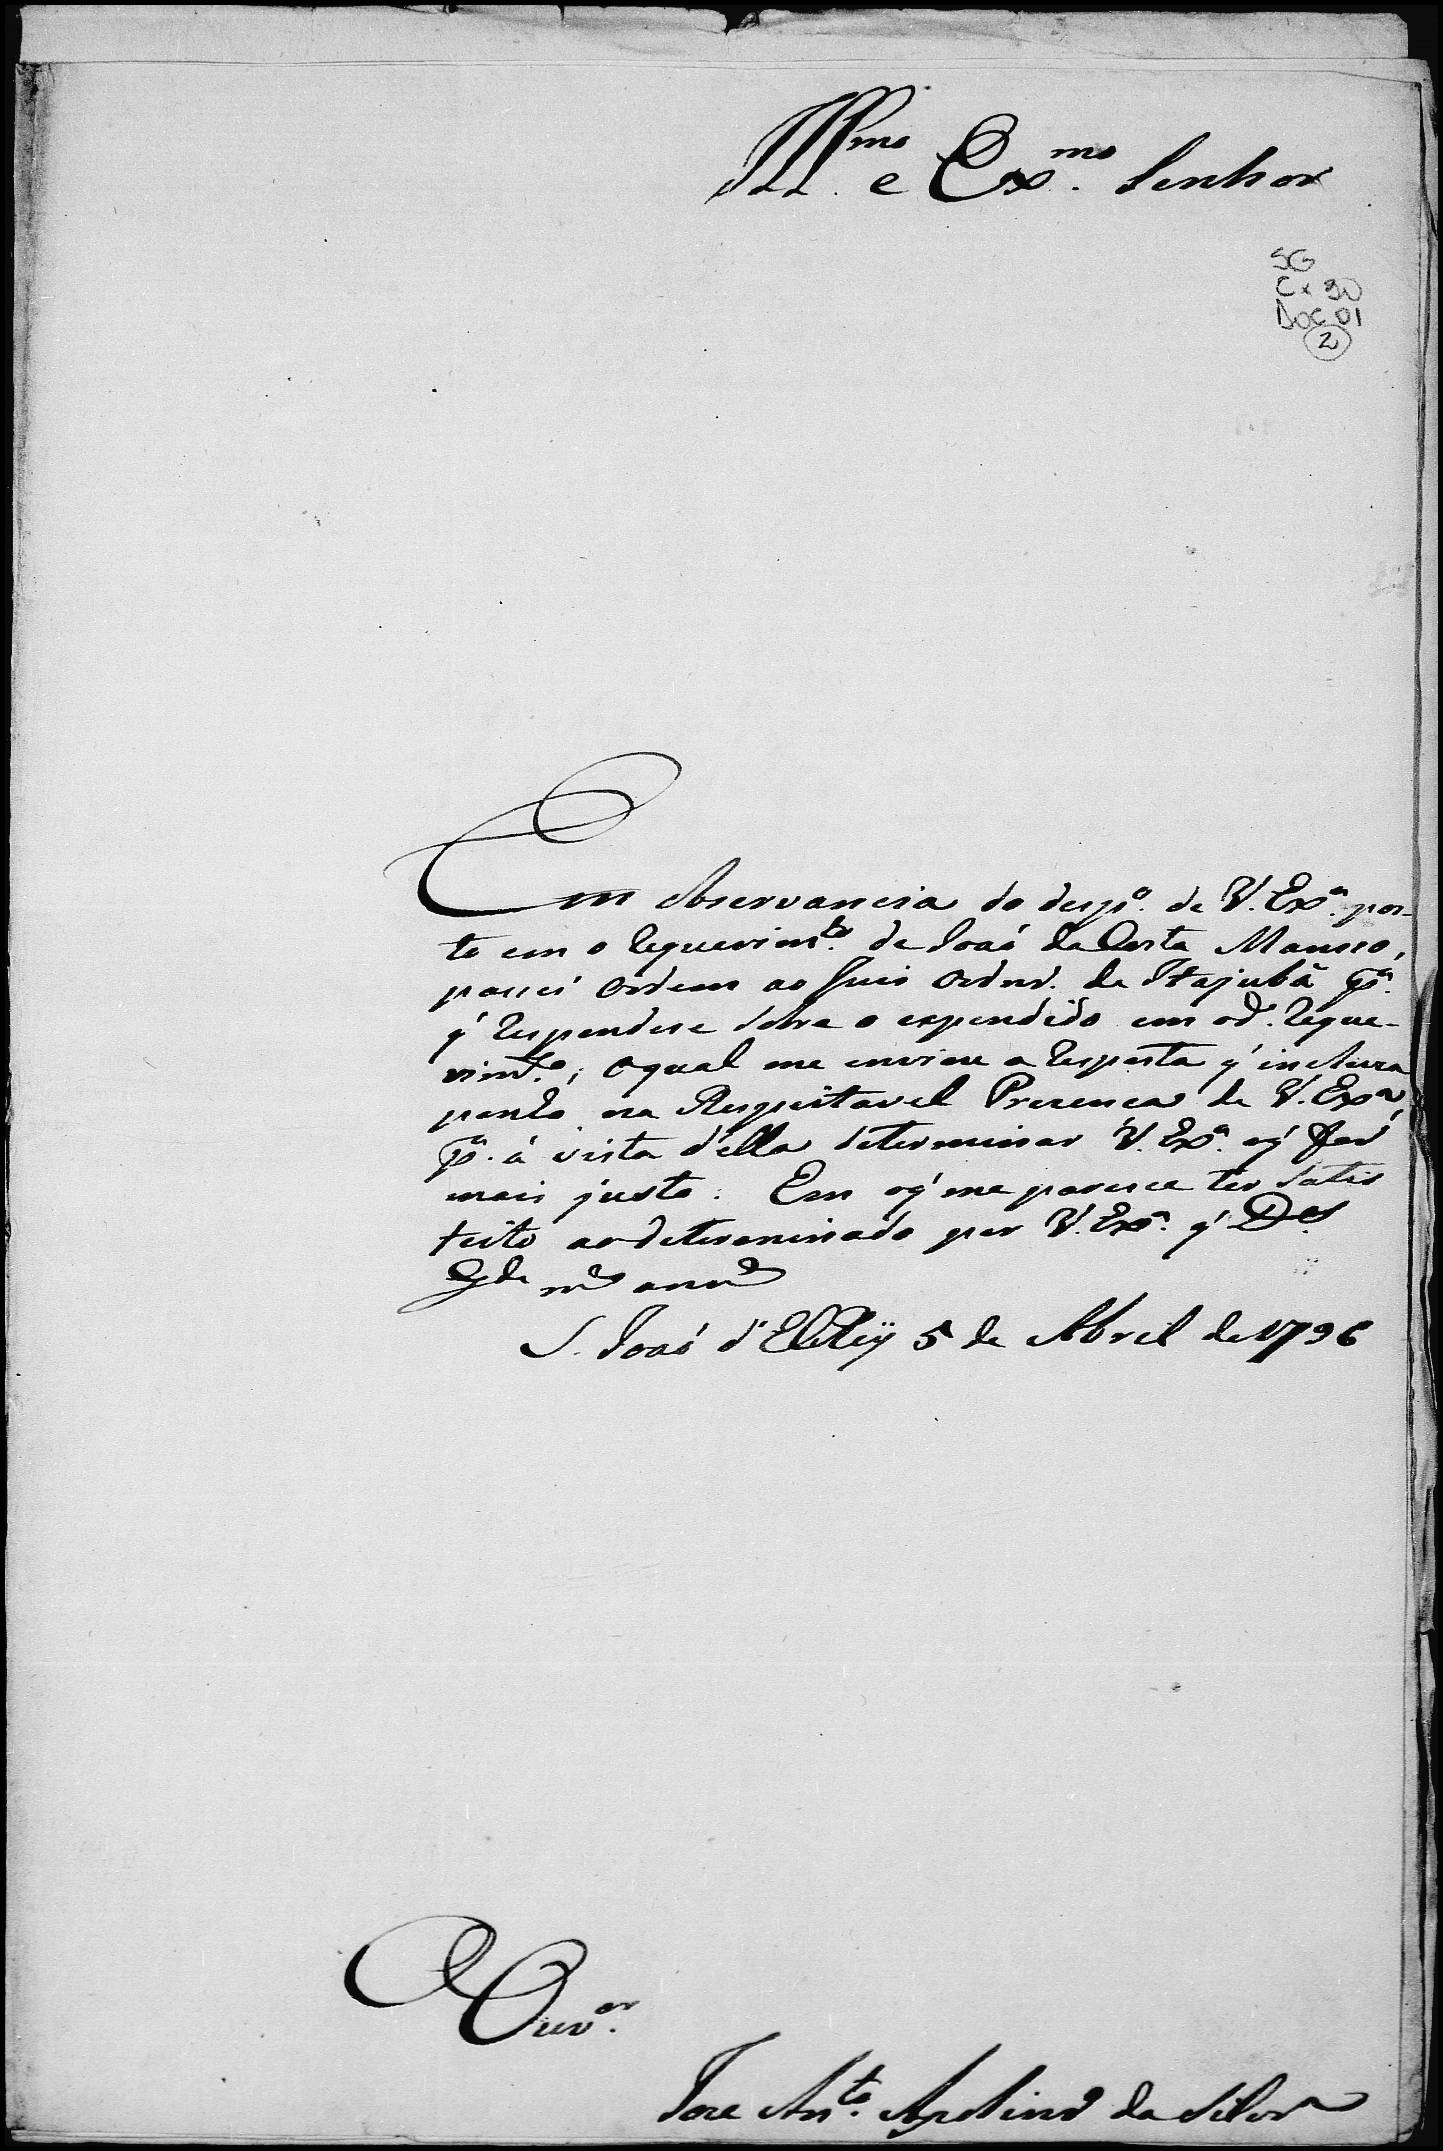 Ill.mo e Ex.mo Senhor
SG
Cx 30
Doc 01
2
Em observancia do desp.o de V. Ex.a pos-
to em o requerim.to de Joaõ da Costa Mansso,
passei ordem ao Juis ordnr.o de Itajubâ p.a
q' respondese sobre o expendido em o d.o reque-
rim.to; o qual me enviou a resposta q' incluza
ponho na Respeitavel Prezença de V. Ex.a
p.a á vista d'ella determinar V. Ex.a o q' for
mais justo. Em o q' me parece ter satis
feito ao determinado por V. Ex.a q' D.s
g.de m.s ann.s
S. Joaõ d'El Rey 5 de Abril de 1796
O Ouv.or
Joze An.to Apolinr.o da Silvr.a